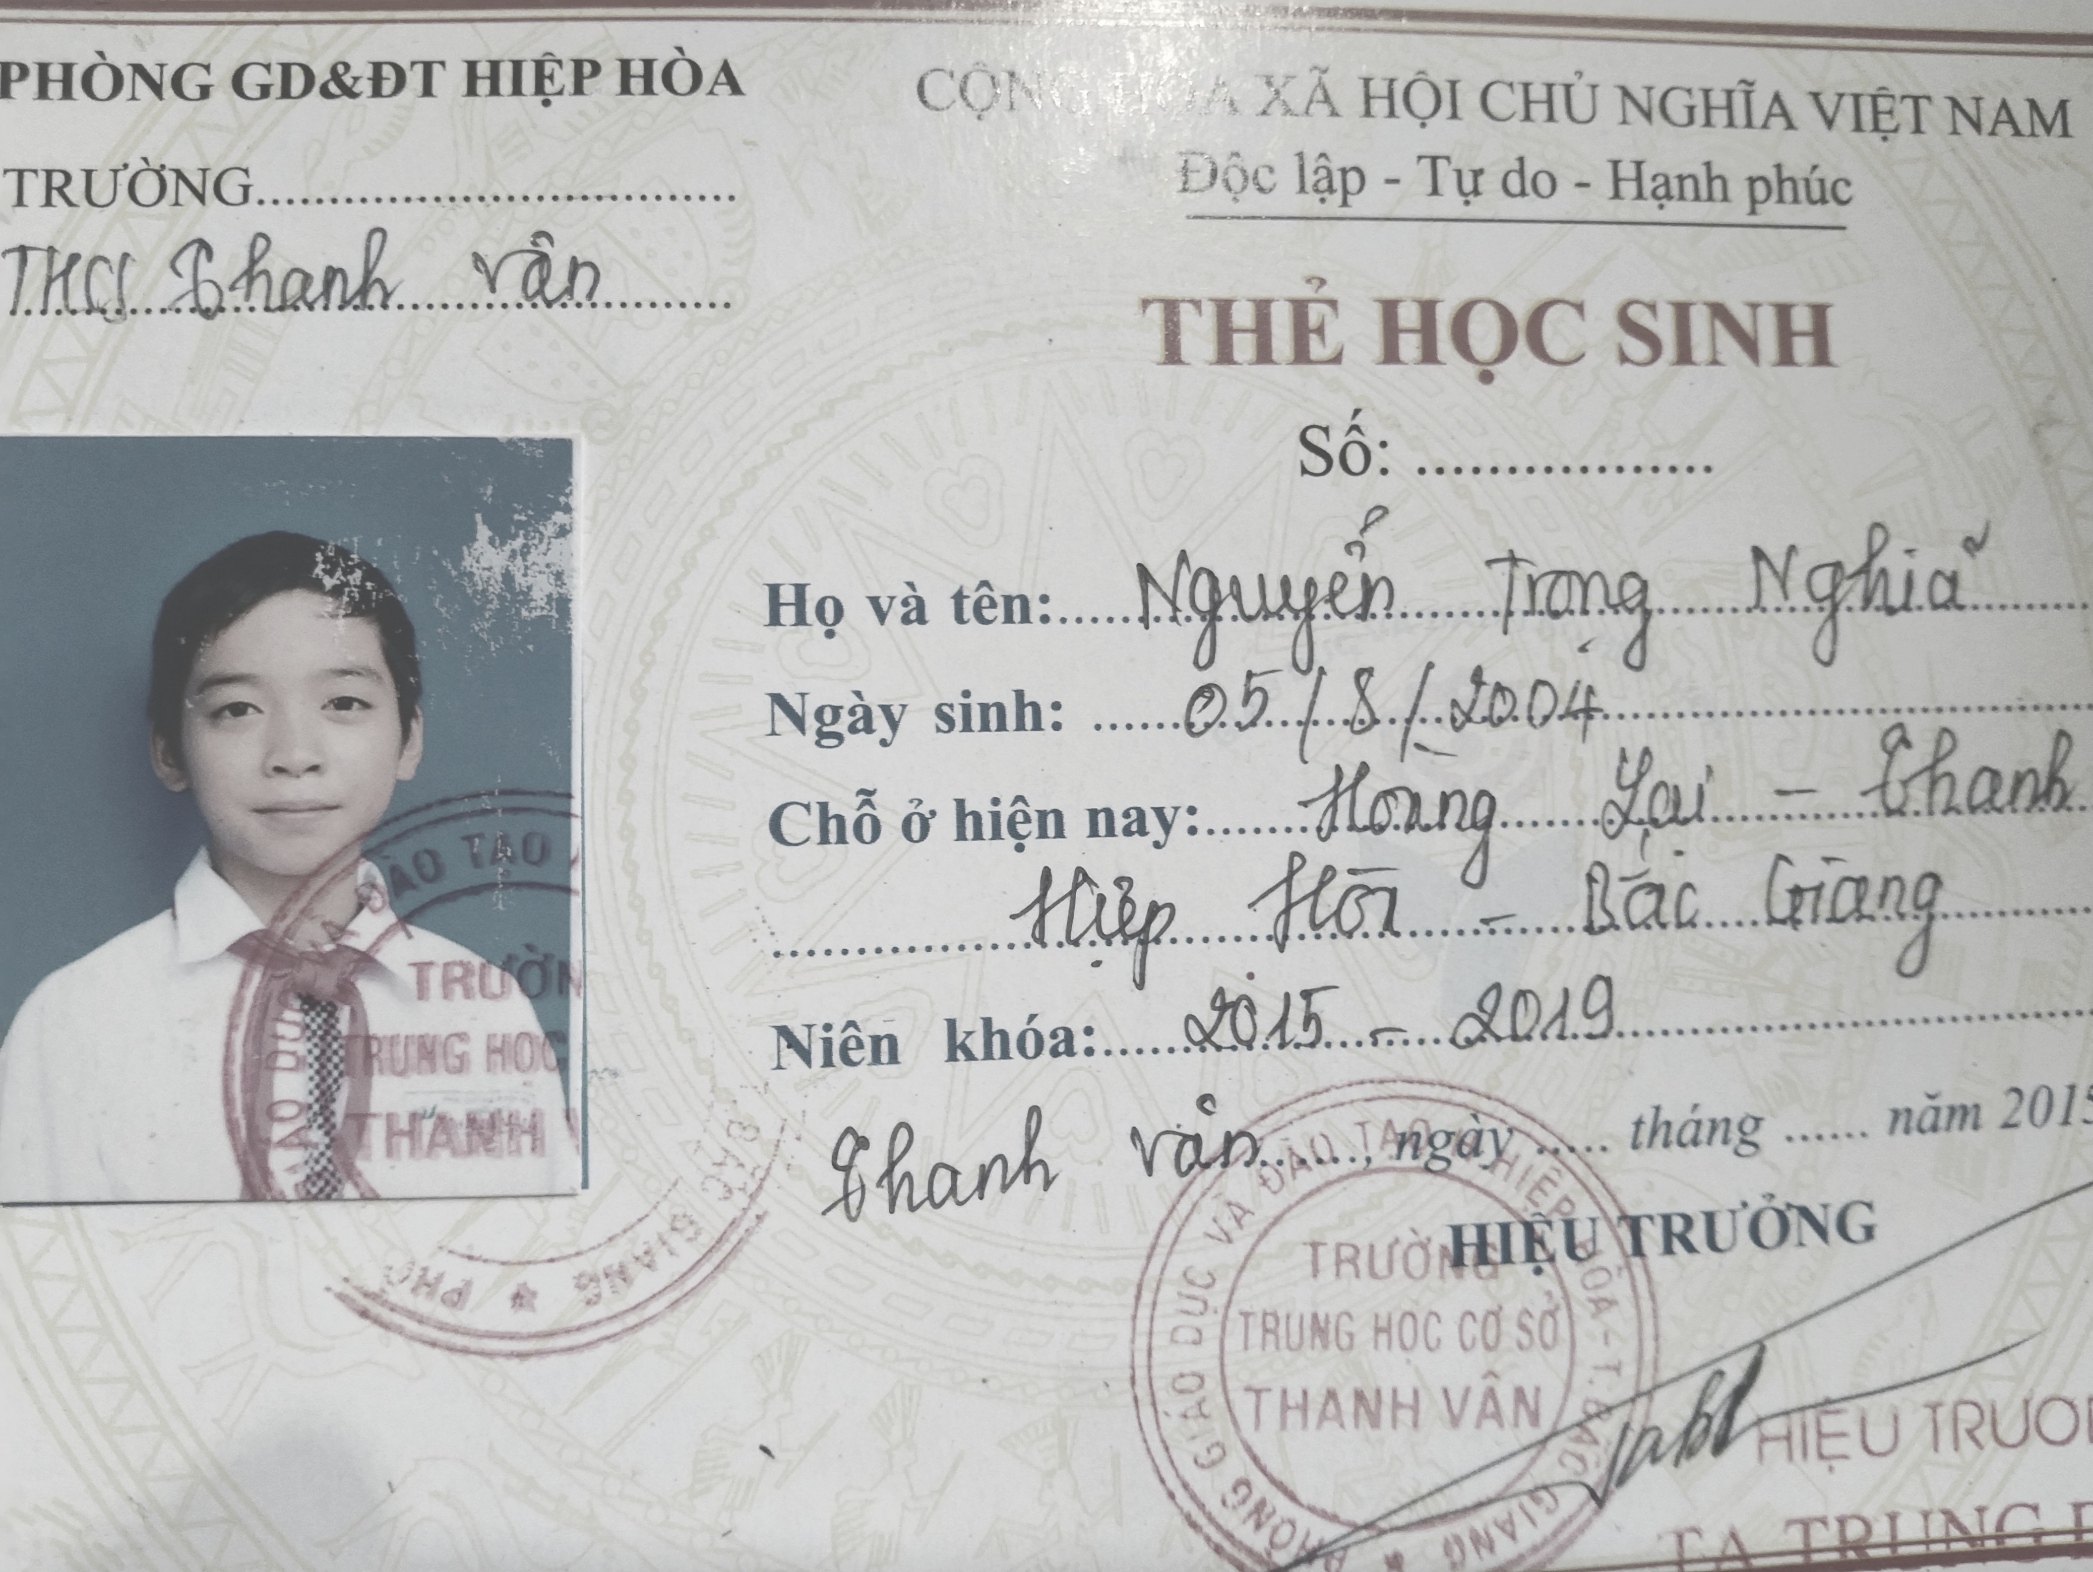 PHÒNG GD&ĐT HIỆP HÒA
TRƯỜNG
THCS Thanh Vân
CỘNG HÒA XÃ HỘI CHỦ NGHĨA VIỆT NAM
Độc lập - Tự do - Hạnh phúc
THẺ HỌC SINH
Số:
Họ và tên: Nguyễn Trọng Nghĩa
Ngày sinh: 05/8/2004
Chỗ ở hiện nay: Hoàng Lại - Thanh
Hiệp Hòa - Bắc Giang
Niên khóa: 2015 - 2019
Thanh Vân, ngày ...... tháng ...... năm 2015
HIỆU TRƯỞNG
ĐÀO TẠO
TRƯỜN
TRUNG HỌC
THANH V
BẮC GIANG ★ PHÒ
PHÒNG GIÁO DỤC VÀ ĐÀO TẠO H. HIỆP HÒA - T. BẮC GIANG ★
TRƯỜNG
TRUNG HỌC CƠ SỞ
THANH VÂN
HIỆU TRƯỞ
TẠ TRUNG